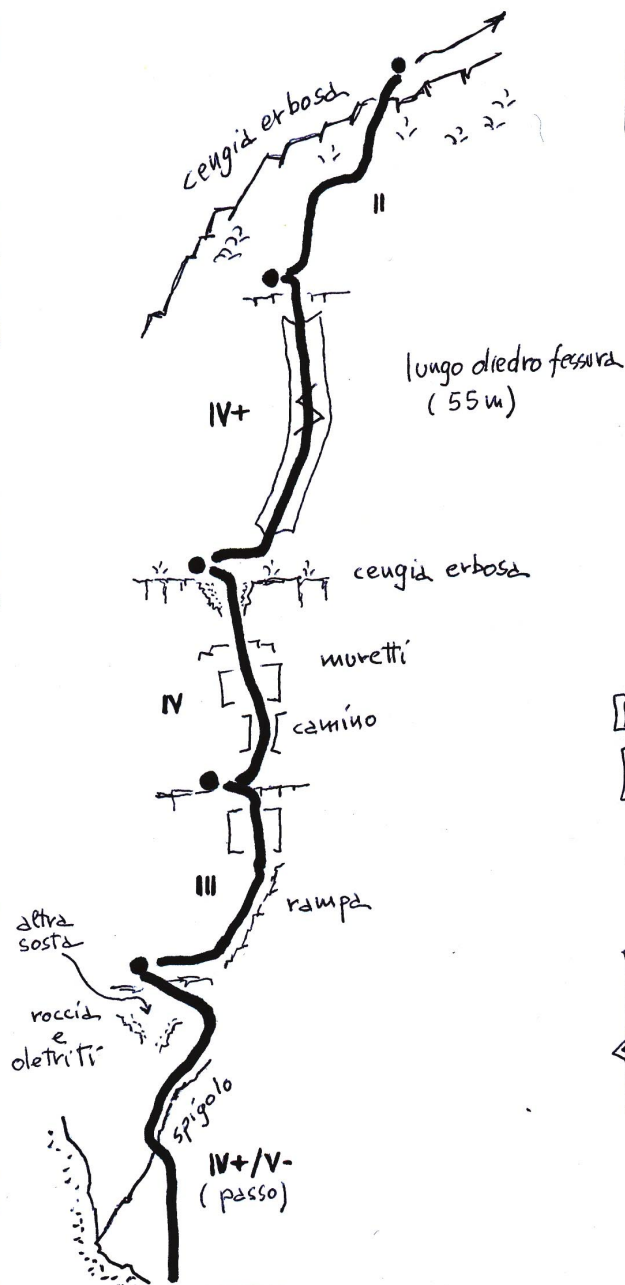 cengia erbosa
II
lungo diedro fessura
(55m)
IV+
cengia erbosa
muretti
IV
camino
III
rampa
altra
sosta
roccia
e
detriti
spigolo
IV+/V-
(passo)